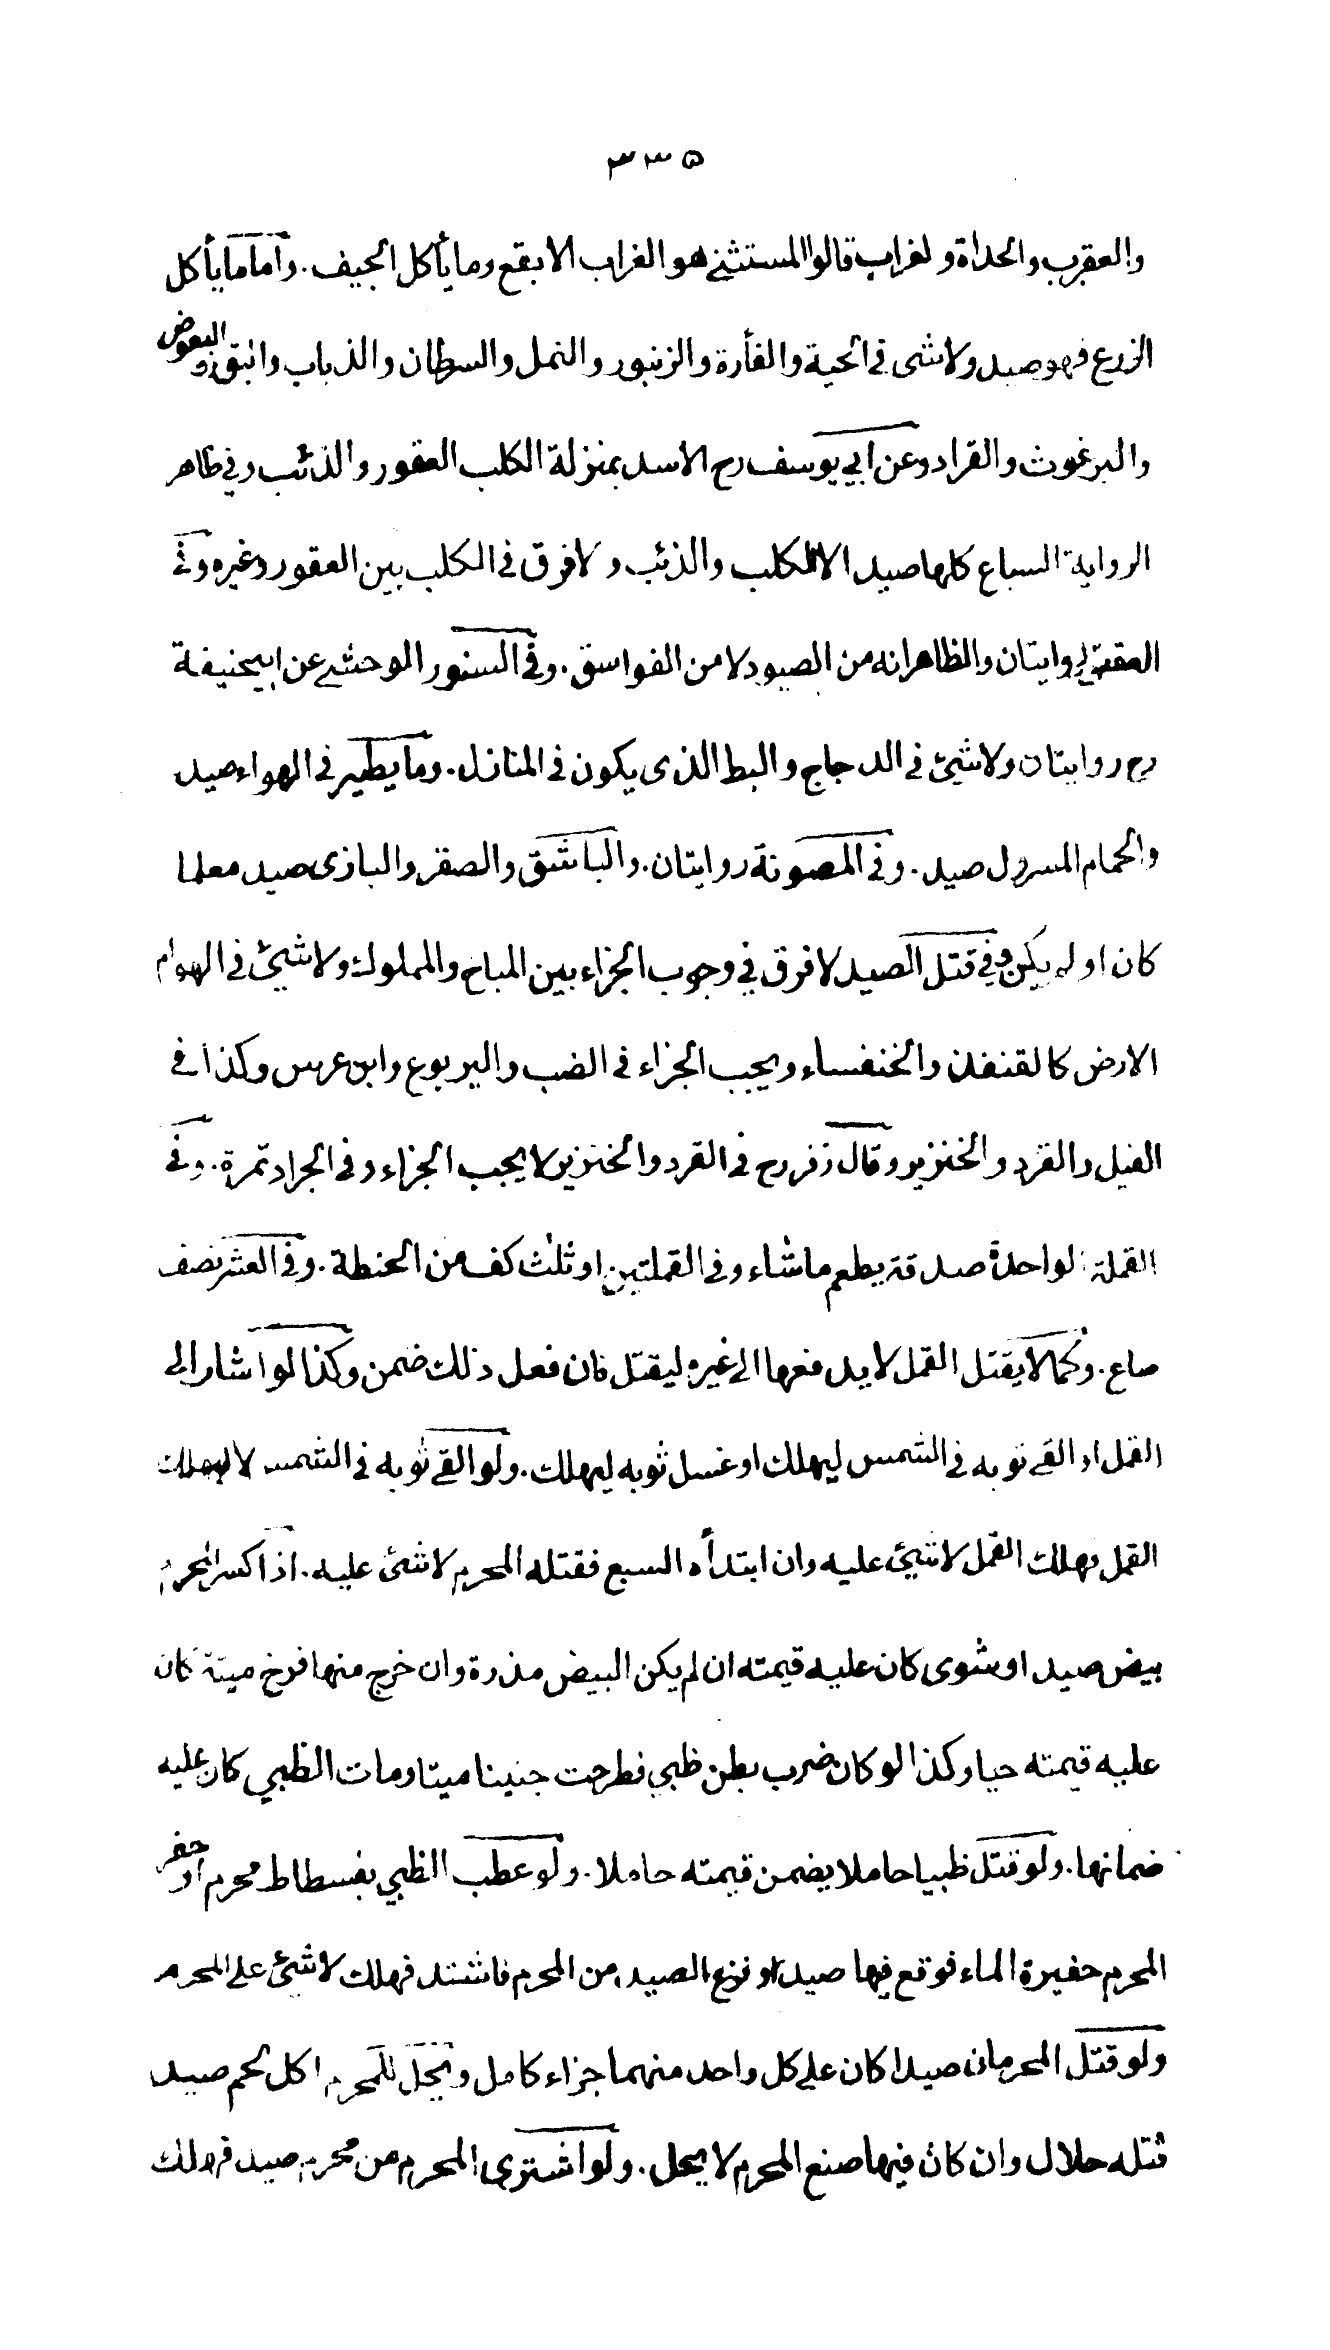 ٣٣٥
والعقرب والحدأة ولغراب قالوا المستثنى هو الغراب الابقع وما يأكل الجيف . واما ما يأكل
الزرع فهو صيد ولا شى فى الحية والفأرة والزنبور والنمل والسرطان والذباب والبق والبعوض
والبرغوث والقراد وعن ابي يوسف رح الاسد بمنزلة الكلب العقور والذئب وفي ظاهر
الرواية السباع كلها صيد الا الكلب والذئب ولا فرق فى الكلب بين العقور وغيره وفى
العقعق روايتان والظاهر انه من الصيود لا من الفواسق . وفى السنور الوحشى عن ابيحنيفة
رح روايتان ولا شيئ فى الدجاج والبط الذى يكون فى المنازل . وما يطير فى الهواء صيد
والحمام المسرول صيد . وفى المصونة روايتان . والباشق والصقر والبازى صيد معلما
كان او لم يكن وفى قتل الصيد لا فرق في وجوب الجزاء بين المباح والمملوك ولا شيئ فى الهوام
الارض كالقنفذ والخنفساء ويجب الجزاء فى الضب واليربوع وابن عرس وكذا فى
الفيل والقرد والخنزير وقال زفر رح فى القرد والخنزير لا يجب الجزاء وفى الجراد تمرة . وفى
القملة الواحدة صدقة يطعم ما شاء وفى القملتين او ثلث كف من الحنطة . وفى العشر نصف
صاع . وكما لا يقتل القمل لا يدفعها الى غيره ليقتل فان فعل ذلك ضمن وكذا لو اشار الى
القمل او القى ثوبه فى الشمس ليهلك او غسل ثوبه ليهلك . ولو القى ثوبه فى الشمس لا ليهلك
القمل فهلك القمل لا شيئ عليه وان ابتدأه السبع فقتله المحرم لا شئ عليه . اذا كسر المحرم
بيض صيد او شوى كان عليه قيمته ان لم يكن البيض مذرة وان خرج منها فرخ ميتة كان
عليه قيمته حيا وكذا لو كان ضرب بطن ظبي فطرحت جنينا ميتا ومات الظبي كان عليه
ضمانها . ولو قتل ظبيا حاملا يضمن قيمته حاملا . ولو عطب الظبي بفسطاط محرم او حفر
المحرم حفيرة الماء فوقع فيها صيد او فزع الصيد من المحرم فاشتد فهلك لا شيئ على المحرم
ولو قتل المحرمان صيدا كان على كل واحد منهما جزاء كامل ويحل للمحرم اكل لحم صيد
قتله حلال وان كان فيها صنع المحرم لا يحل . ولو اشترى المحرم من محرم صيد فهلك